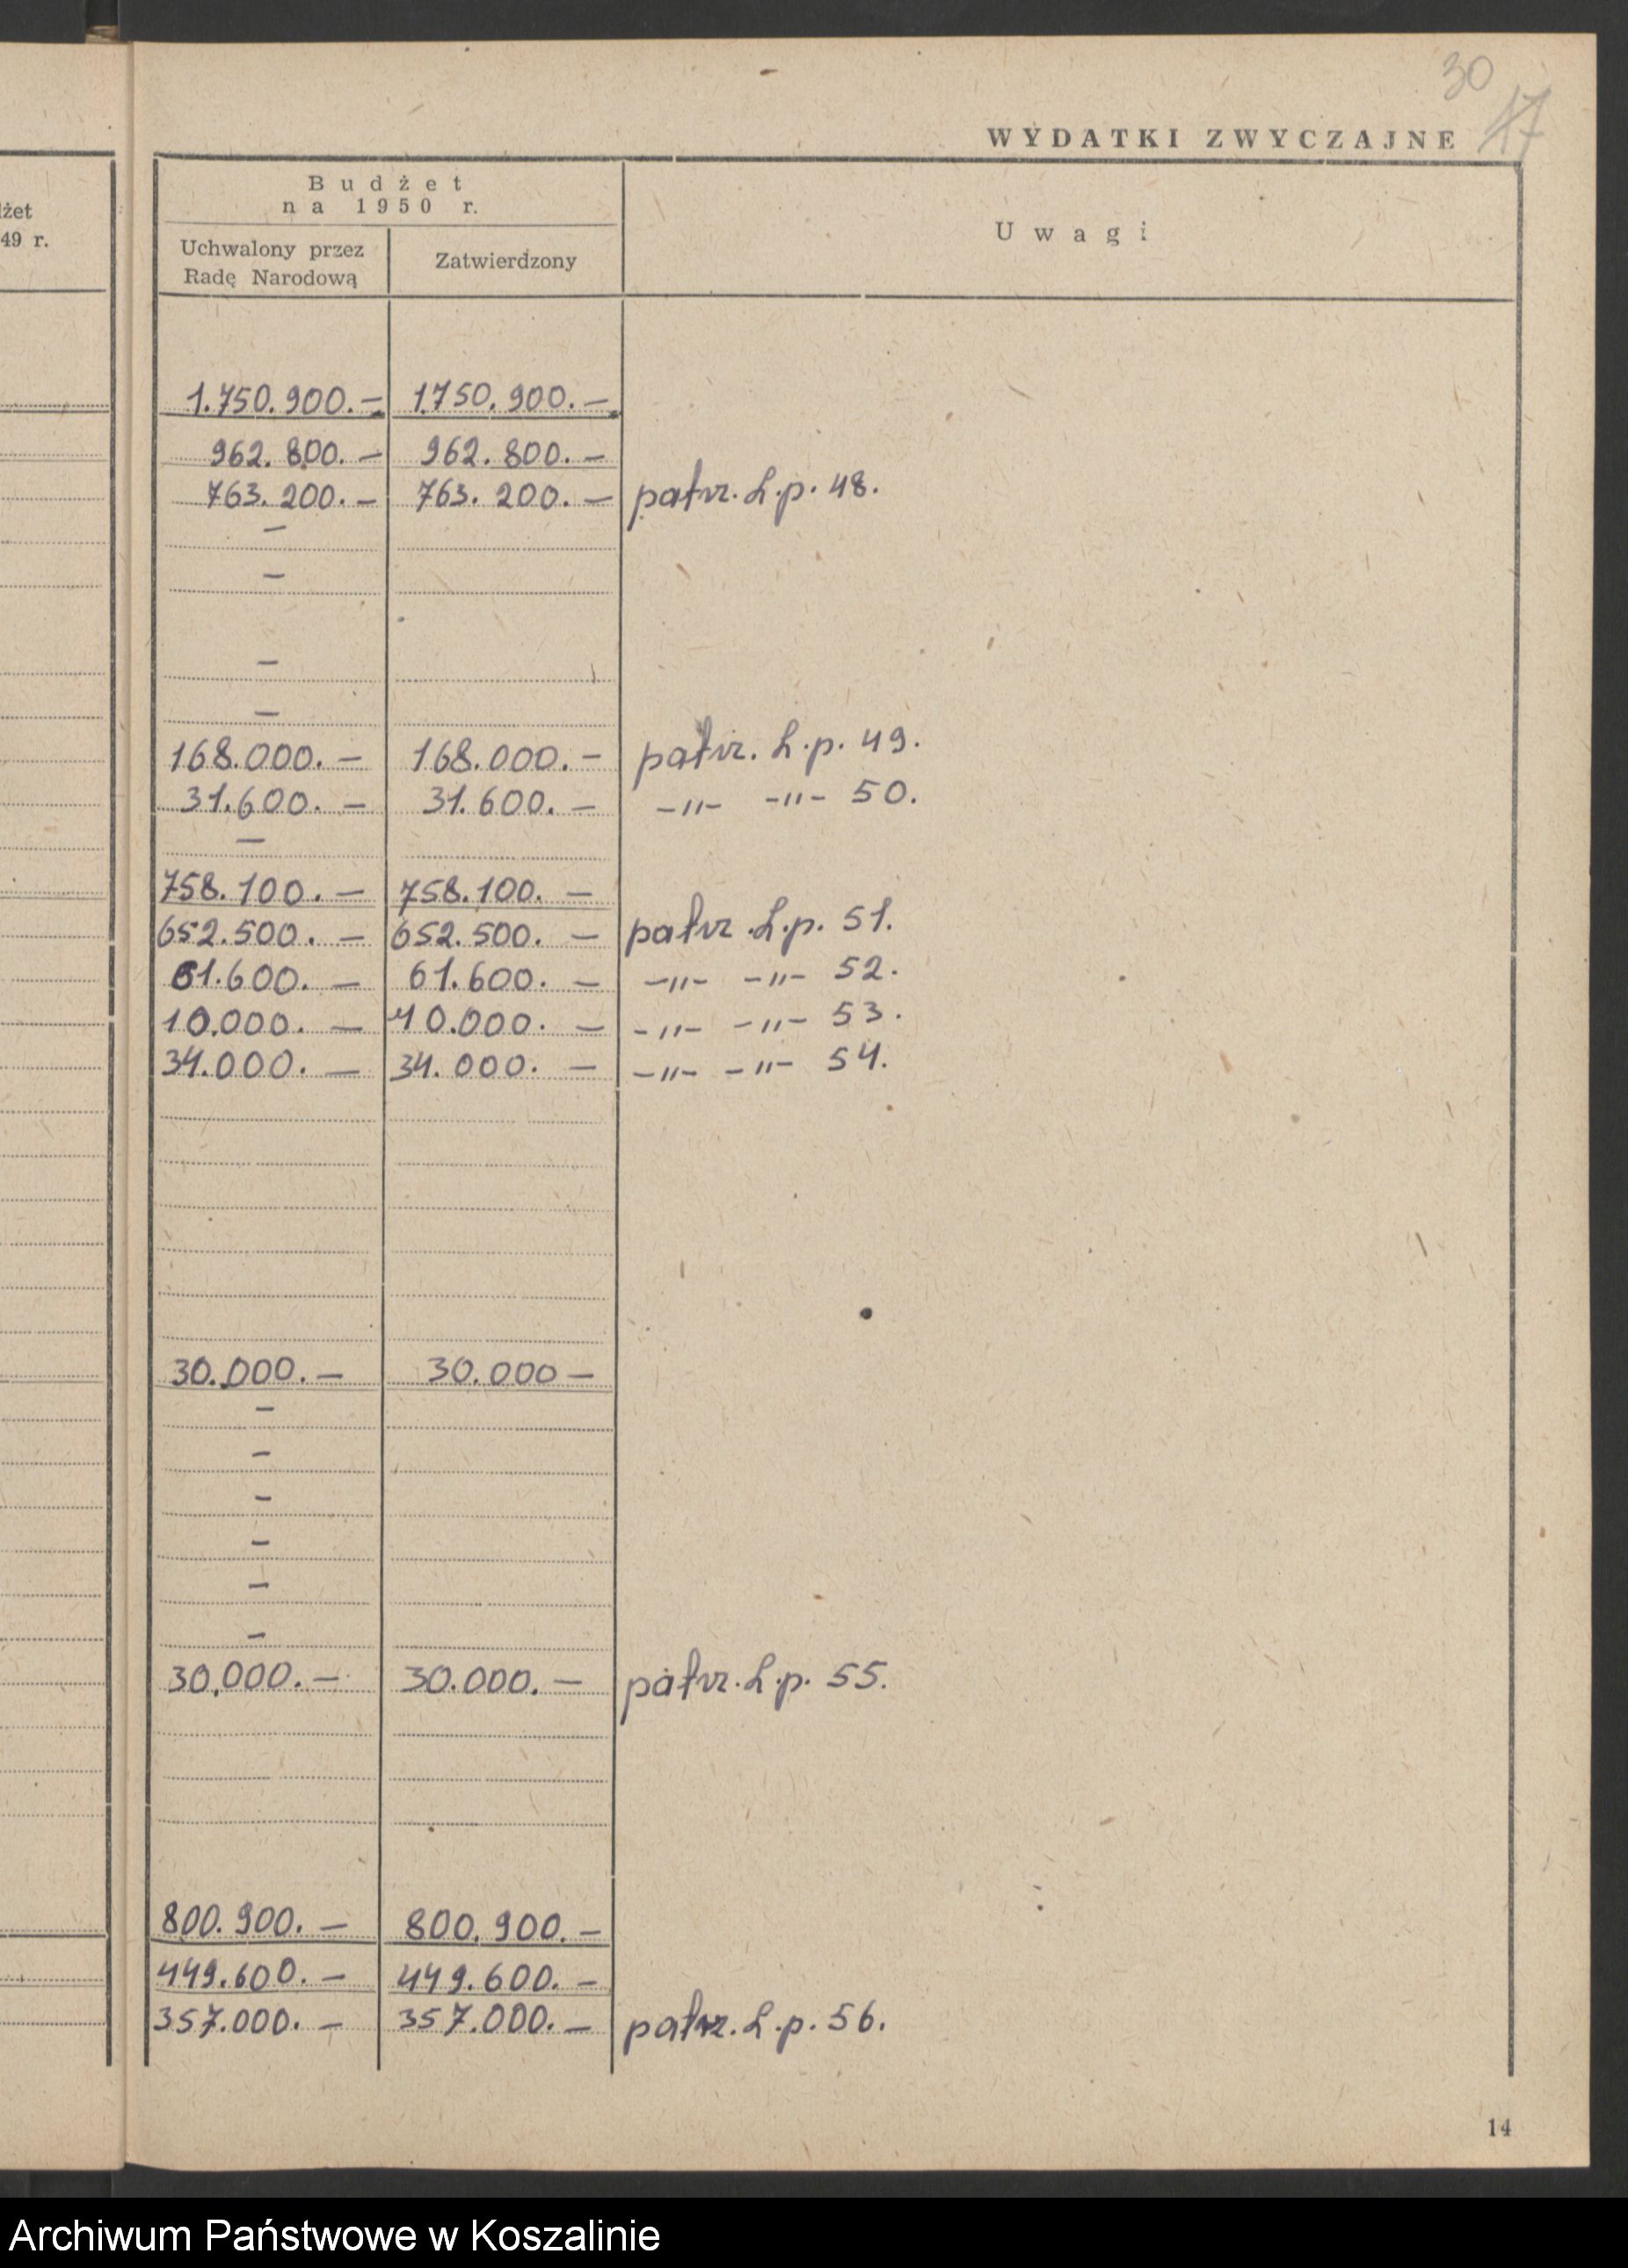 30
17
WYDATKI ZWYCZAJNE
Budżet
na 1950 r.
Uwagi
Uchwalony przez
Radę Narodową
Zatwierdzony
żet
49 r.
1.750.900.— 1.750.900.—
962.800.— 962.800.—
763.200.— 763.200.— patrz. L.p. 48.
—
—
—
—
168.000.— 168.000.— patrz. L.p. 49.
31.600.— 31.600.— —"— —"— 50.
—
758.100.— 758.100.—
652.500.— 652.500.— patrz .L.p. 51.
61.600.— 61.600.— —"— —"— 52.
10.000.— 10.000.— —"— —"— 53.
34.000.— 34.000.— —"— —"— 54.
30.000.— 30.000—
—
—
—
—
—
—
30.000.— 30.000.— patrz. L.p. 55.
800.900.— 800.900.—
449.600.— 449.600.—
357.000.— 357.000.— patrz. L.p. 56.
14
Archiwum Państwowe w Koszalinie